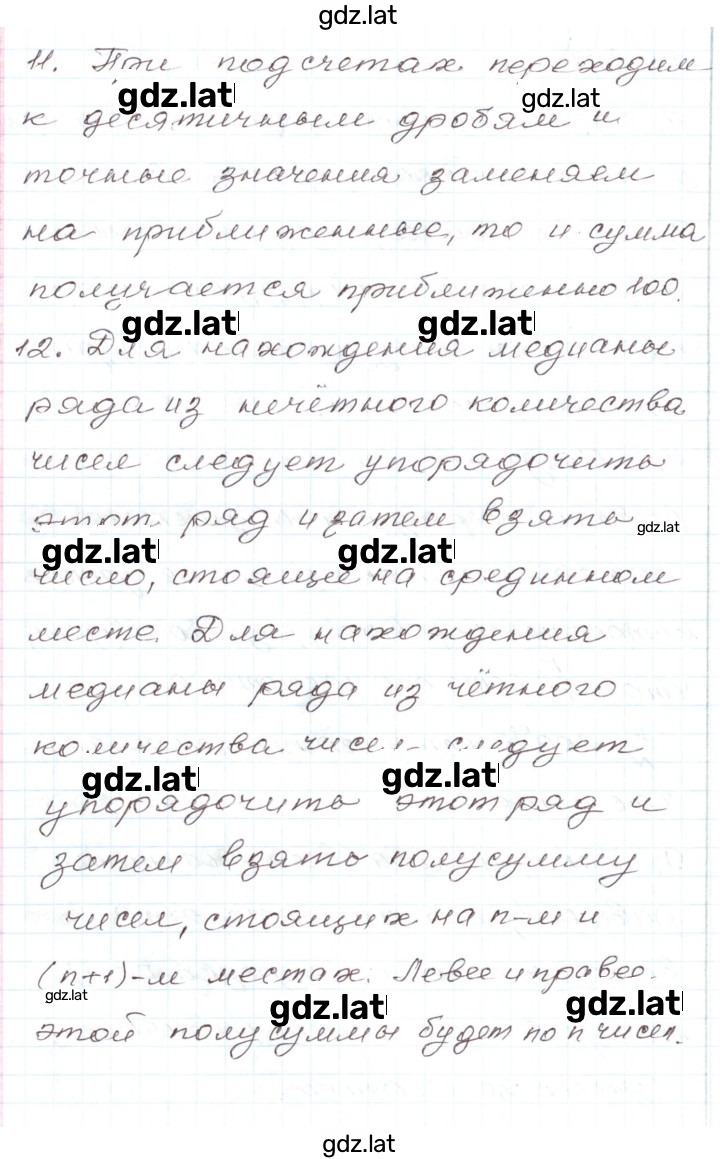 gdz.lat
11. При подсчетах переходим
gdz.lat gdz.lat
к десятичным дробям и
точные значения заменяем
на приближенные, то и сумма
получается приближенно 100.
gdz.lat gdz.lat
12. Для нахождения медианы
ряда из нечётного количества
чисел следует упорядочить
этот ряд и затем взять
gdz.lat
gdz.lat gdz.lat
число, стоящее на срединном
месте. Для нахождения
медианы ряда из чётного
количества чисел следует
gdz.lat gdz.lat
упорядочить этот ряд и
затем взять полусумму
чисел, стоящих на n-м и
(n+1)-м местах. Левее и правее
gdz.lat gdz.lat gdz.lat
этой полусуммы будет по n чисел.
gdz.lat